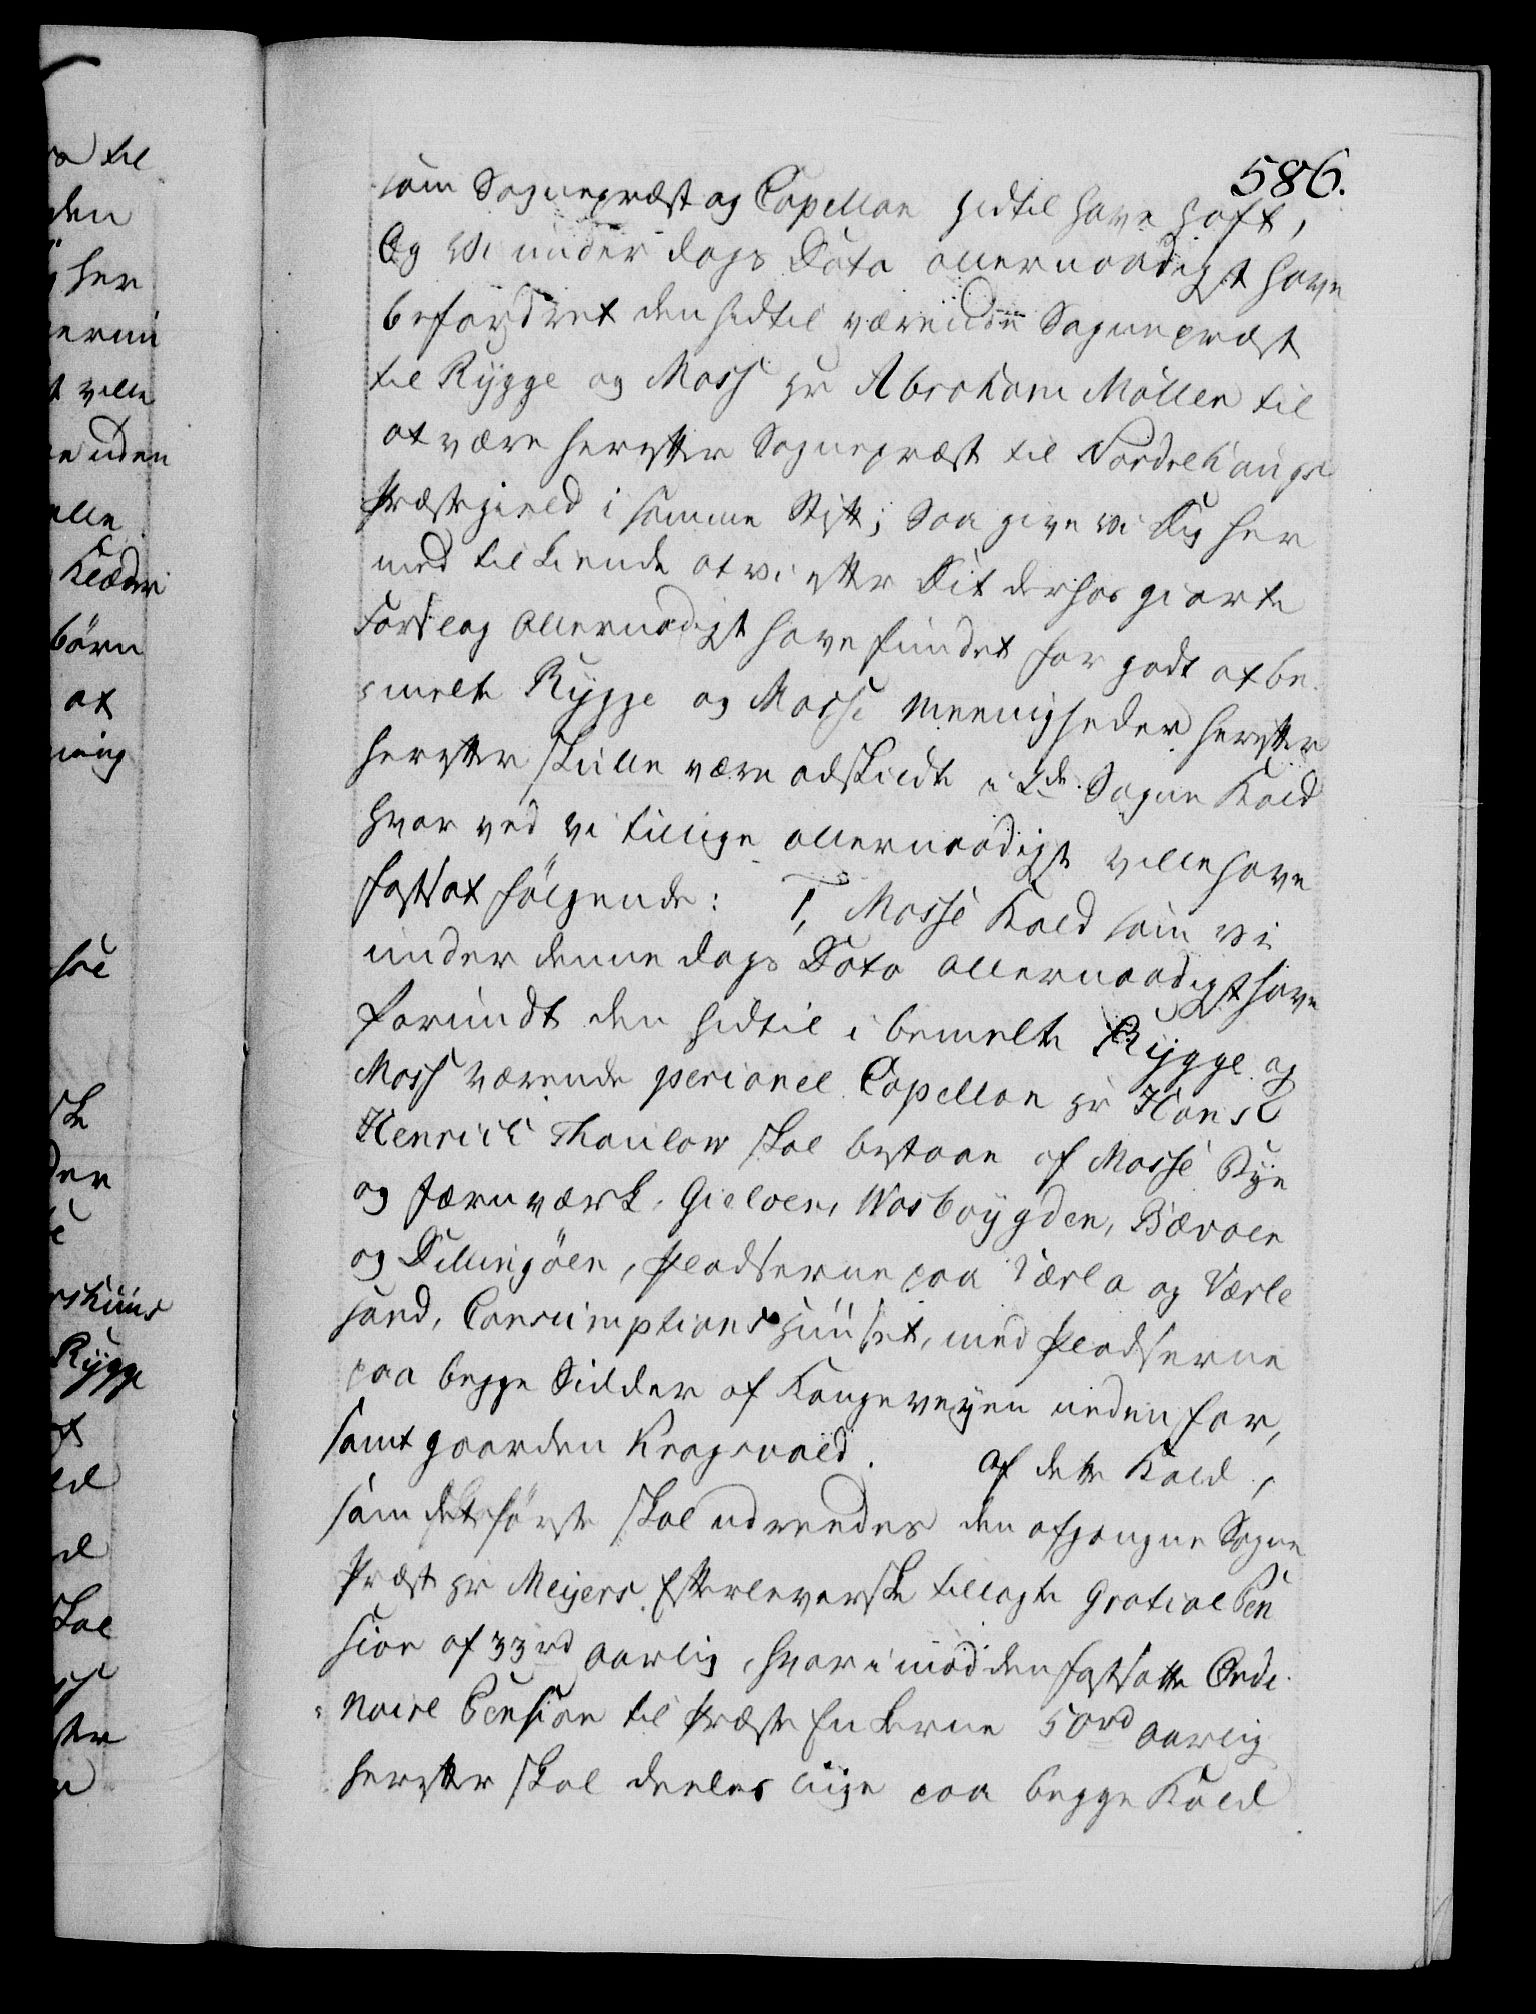 586.
som Sognepræst og Capellan hidtil have haft,
Og Vi under dags Dato allernaadigst have
befordret den hidtil værende Sognepræst
til Rÿgge og Moss Hr Abraham Möller til
at være herefter Sognepræst til Nordrehaugs
Præstegield i samme Stift; Saa give vi Dig her
med tilkiende at vi efter Dit derhos giorte
Forslag allernadigst have fundet for godt at be¬
melte Rÿgge og Mosse Meenigheder herefter
herefter skulle være adskildte i 2de Sogne Kald
hvor ved vi tillige allernaadigst ville have
fastsat fölgende: 1, Mosse Kald som vi
under denne dags Dato allernaadigst have
forundt den hidtil i bemelte Rÿgge og
Moss værende personel Capellan Hr Hans
Henrich Thaulow skal bestaae af Mosse Bÿe
og Jærnværk, Gieloen, Nosboÿgden, Bævoen
og Dillingöen, Pladserne paa Værla og Værle
sand, Consumptions Huuset, med Pladserne
paa begge Sidder af Kongeveÿen neden for,
samt gaarden Kragsvold. Af dette Kald,
som det förste skal udreedes den afgangne Sogne
Præst Hr Meÿers Efterleverske tillagte Gratial Pen
sion af 33rd aarlig, hvorimod den fastsatte Ordi¬
naire Pension til Præste Enkerne 50rd aarlig
herefter skal deeles liige paa begge Kald